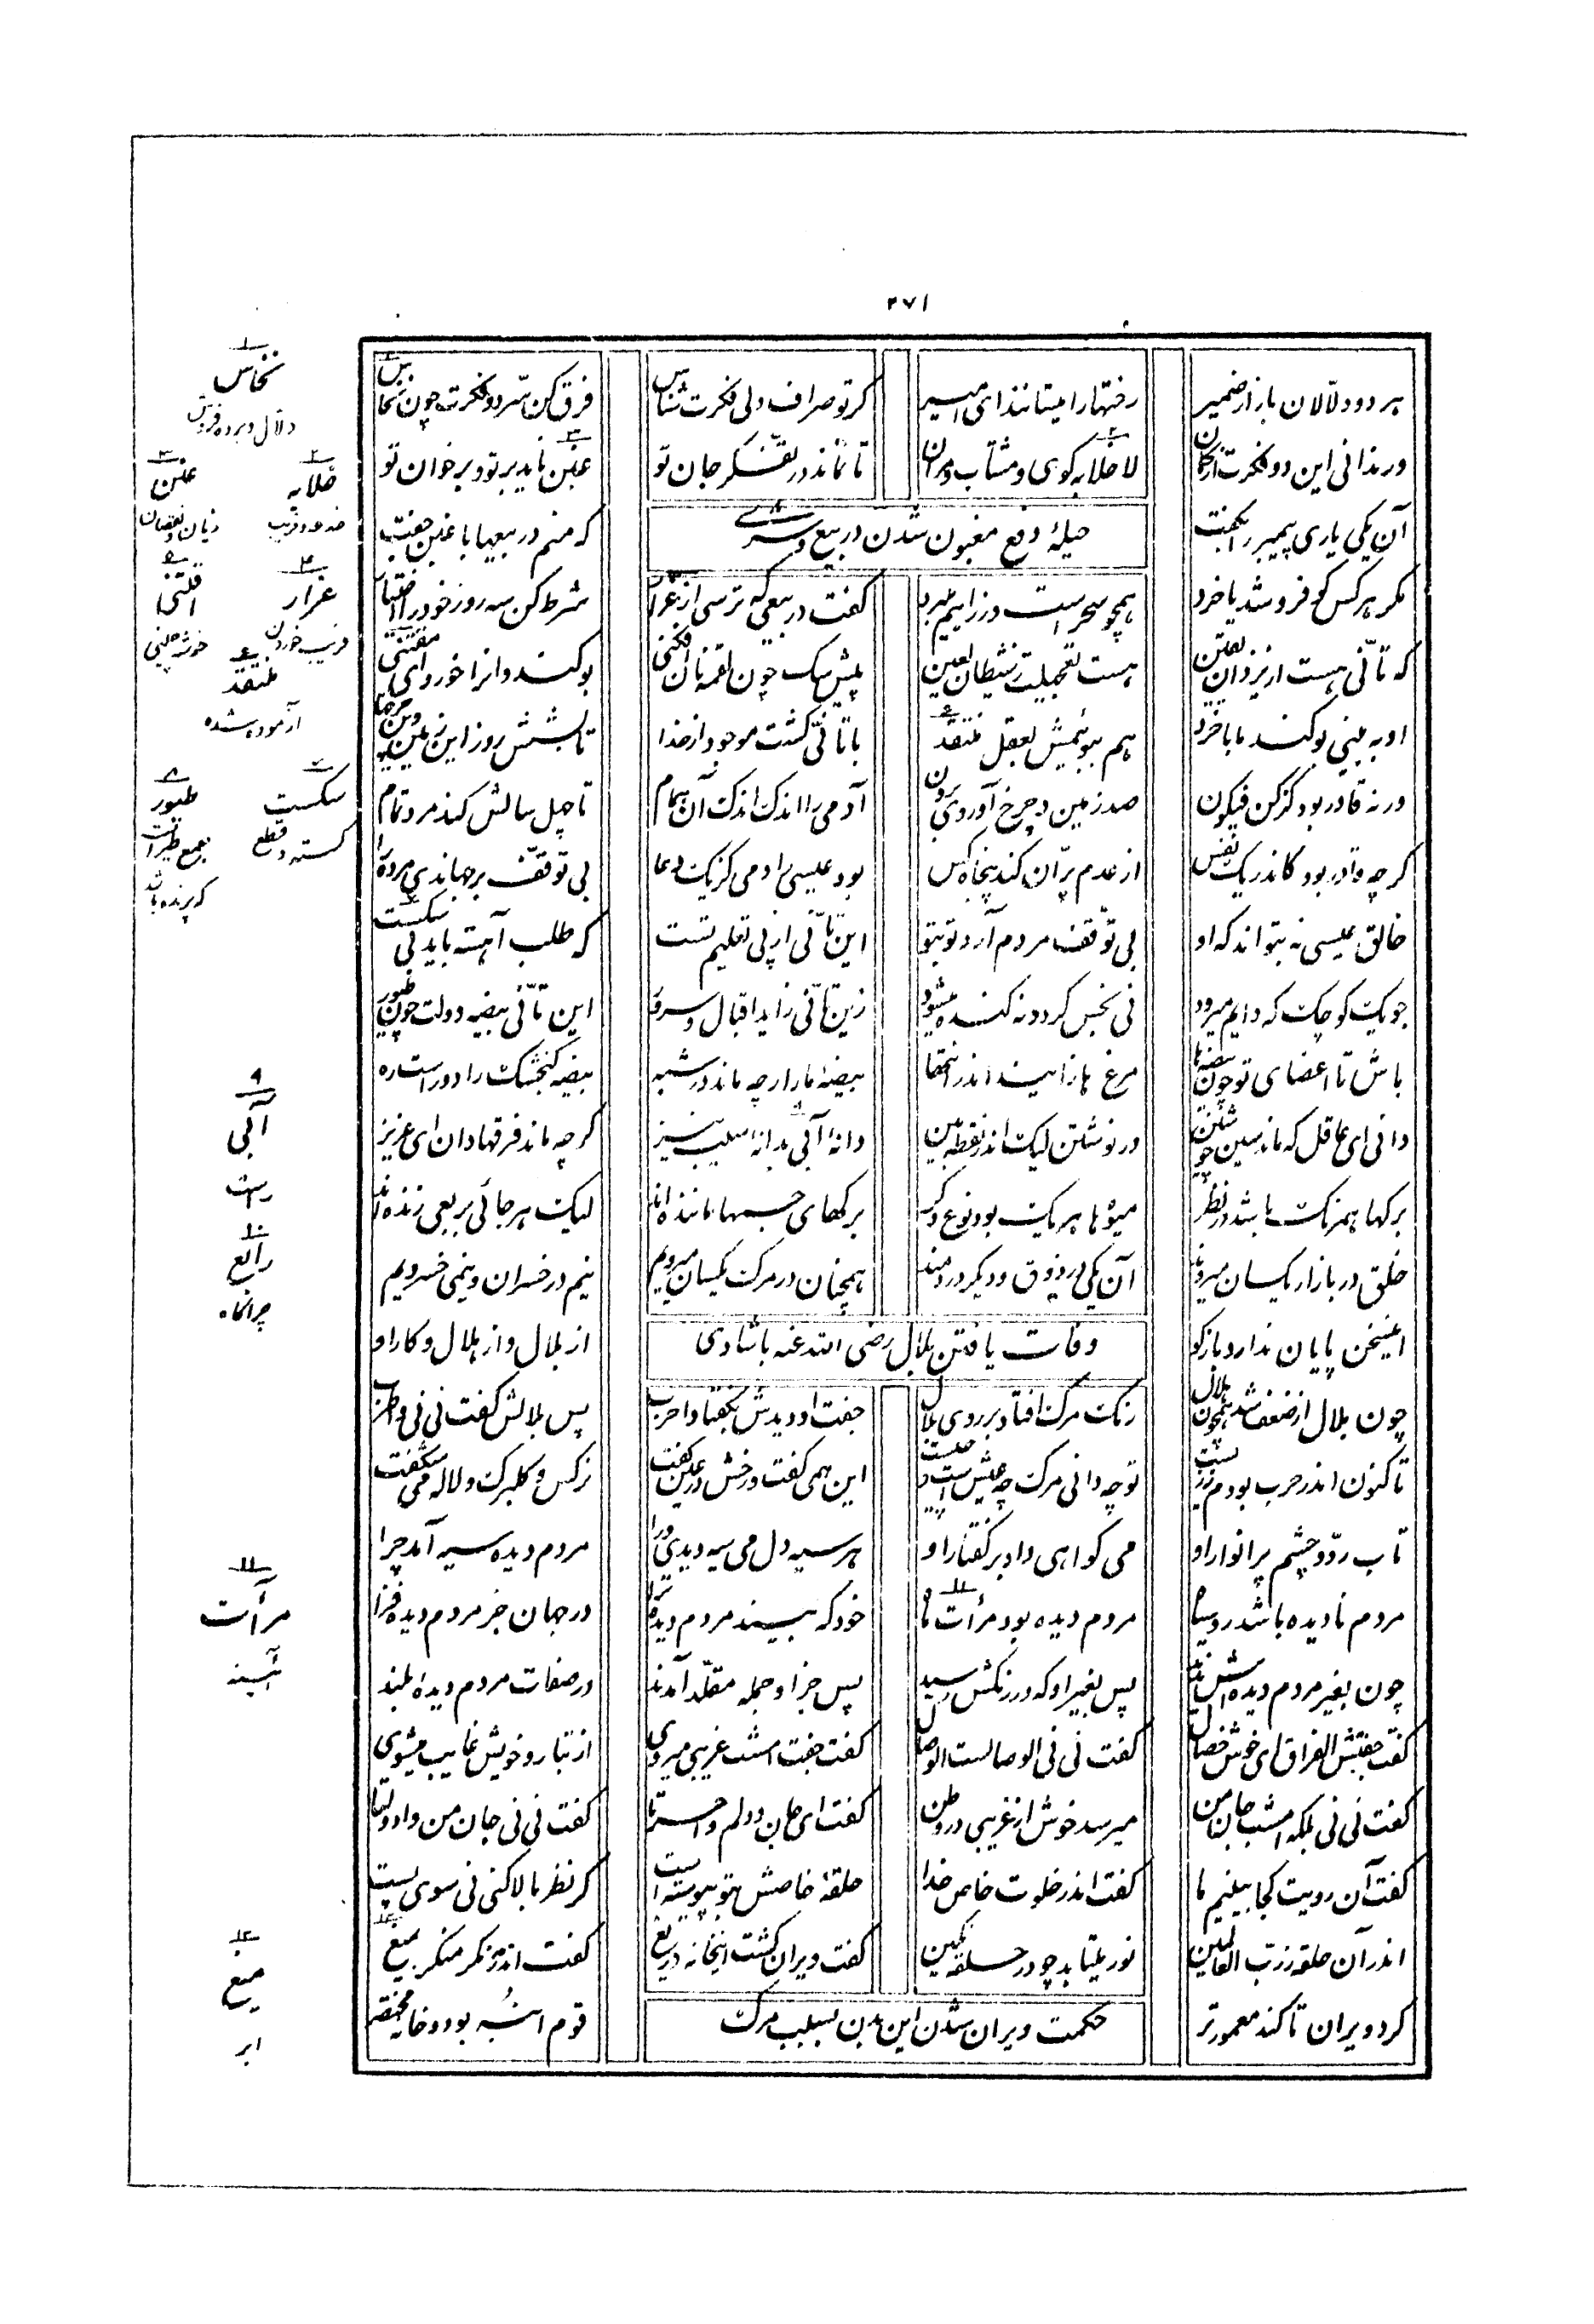 ۲۷۱
هر دو دلّالان بازار ضمیر رختها را میستانند ای امیر کر تو صراف دلی فکرت شناس فرق کن سّر دو فکرت چون نخاس
ور ندانی این دو فکرت از کمان لا خلابه کوی و مشتاب و مران تا نماند در تفّکر جان تو غبن ناید بر تو و بر خوان تو
آن یکی یاری پیمبر را بکفت حیلهٔ دفع مغبون شدن در بیع و شری که منم در بیعها با غبن جفت
مکر هر کس کو فروشد یا خرد همچو سحر است و ز راهم میبرد کفت در بیعی که ترسی از غرار شرط کن سه روز خود را اختیار
که تأنّی هست از یزدان یقین هست تعجیلت ز شیطان لعین پیش سک چون لقمه نان افکنی بو کند وانرا خورد ای مقتنی
او به بینی بو کند ما با خرد هم ببوئیمش بعقل منتقد با تأنّی کشت موجود از خدا تا بشش روز این زمین و این چرخها
ور نه قادر بود کز کن فیکون صد زمین و چرخ آوردی برون آدمی را اندک اندک آن همام تا چهل سالش کند مرد تمام
کر چه قادر بود کاندر یک نفس از عدم پرّان کند پنجاه کس بود عیسی را دمی کز یک دعا بی توقّف بر جهاندی مرده را
خالق عیسی نه بتواند که او بی توقّف مردم آرد تو بتو این تأنّی از پی تعلیم تست که طلب آهسته باید بی سکست
جویک کوچک که دایم میرود نی نجس کردد نه کنده میشود زین تأنّی زاید اقبال و سرور این تأنّی بیضه دولت چون طیور
باش تا اعضای تو چون بیضه‌ها مرغ ها زایند اندر انتها بیضهٔ مار ار چه ماند در شبه بیضه کنجشک را دور است ره
دانی ای عاقل که ماند سین چو شین در نوشتن لیک اندر نقطه بین دانهٔ آبی بدانهٔ سیب نیز کر چه ماند فرقها دان ای عزیز
برکها همرنک باشد در نظر میوها هر یک بود نوع دکر برکهای جسمها ماننده‌اند لیک هر جانی بریعی زنده‌اند
خلق در بازار یکسان میروند آن یکی در ذوق و دیکر دردمند همچنان در مرک یکسان میرویم نیم در خسران و نیمی خسرویم
اینسخن پایان ندارد باز کو وفات یافتن بلال رضی الله عنه با شادی از بلال و از هلال و کار او
چون بلال از ضعف شد همچون هلال رنک مرک افتاد بر روی بلال جفت او دیدش بکفتا وا حرب پس بلالش کفت نی نی وا طرب
تا کنون اندر حرب بودم ز زیست تو چه دانی مرک چه عیش است و چیست این همی کفت و رخش در عین کفت نرکس و کلبرک و لاله می شکفت
تاب ردّو چشم پر انوار او می کواهی داد بر کفتار او هر سیه دل می سیه دیدی ورا مردم دیده سیه آمد چرا
مردم نادیده باشد رو سیاه مردم دیده بود مرآت ماه خود که بیند مردم دیدهٔ ترا در جهان جز مردم دیده فزا
چون بغیر مردم دیده‌اش ندید پس بغیر او که در رنکش رسید پس جز او جمله مقلّد آمدند در صفات مردم دیدهٔ بلند
کفت جفتش الفراق ای خوش خصال کفت نی نی الوصالست الوصال کفت جفت امشب غریبی میروی از تبار و خویش غایب میشوی
کفت نی نی بلکه امشب جان من میرسد خوش از غریبی در وطن کفت ای جان و دلم وا حسرتا کفت نی نی جان من وا دولتا
کفت آن رویت کجا بینیم ما کفت اندر خلوت خاص خدا حلقهٔ خاصش بتو پیوسته است کر نظر بالا کنی نی سوی پست
اندر آن حلقه ز ربّ العالمین نور میتابد چو در حلقه نکین کفت ویران کشت اینخانه دریغ کفت اندر مه نکر منکر بمیغ
کرد ویران تا کند معمورتر حکمت ویران شدن این بدن بسبب مرک قوم انبُه بود و خانه مختصر
۱
نخاس
دلّال و برده فروش
۲ ۳
خلابه غبن
خدعه و فریب زیان و نقصان
۴ ۵
غرار اقتنا
فریب خوردن خوشه چینی
۶
منتقد
آزموده شده
۷ ۸
سکست طیور
کسسته و قطع جمع طیر است
که پرنده باشد
۹
آبی
است
۱۰
رابع
چراکاه
۱۱
مرآت
آئینه
۱۲
میغ
ابر